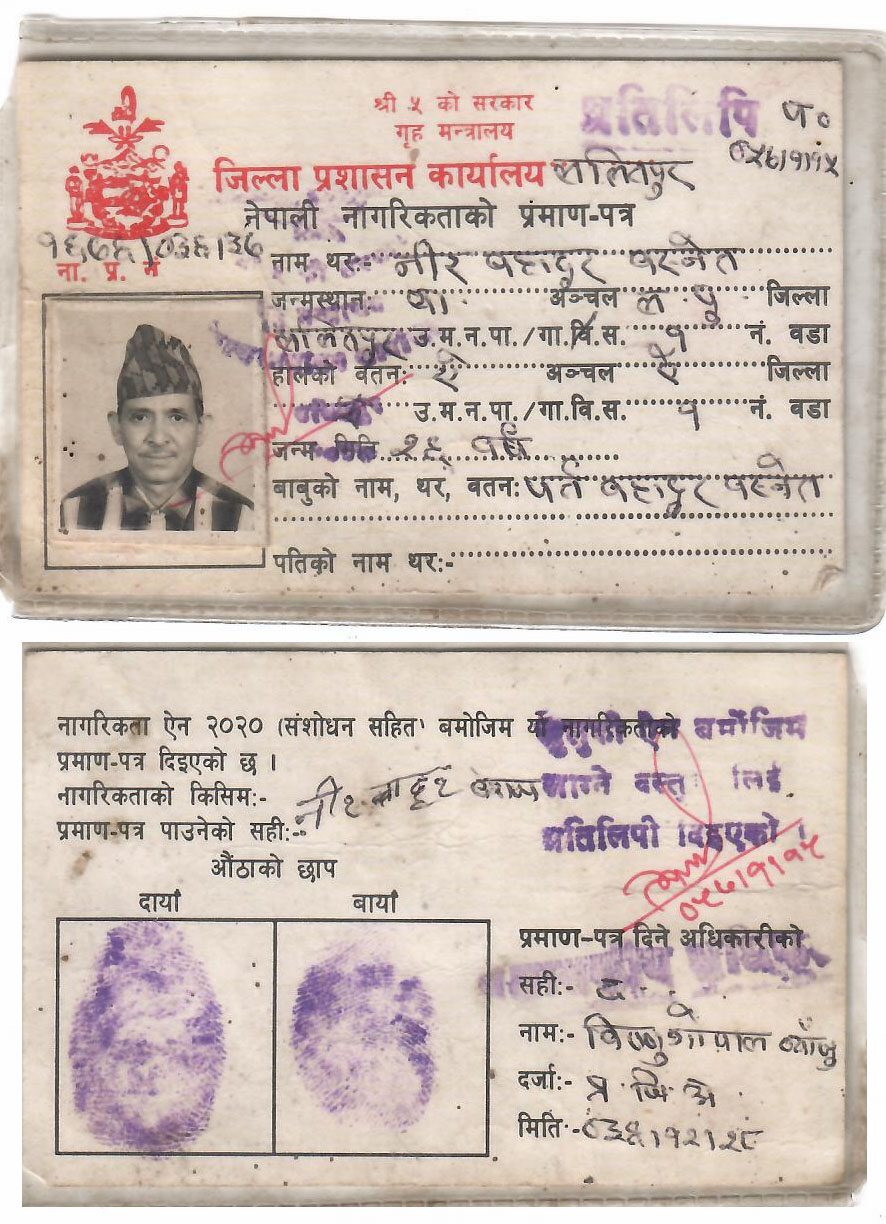 श्री ५ को सरकार
गृह मन्त्रालय
प्रतिलिपि
जिल्ला प्रशासन कार्यालय ललितपुर
नेपाली नागरिकताको प्रमाण-पत्र
ना. प्र. नं
नाम थरः- नीर बहादुर बस्नेत
जन्मस्थानः बा. अञ्चल ल. पु जिल्ला
ललितपुर उ.म.न.पा./गा.वि.स. १ नं. वडा
हालको वतनः ऐ अञ्चल ऐ जिल्ला
उ.म.न.पा./गा.वि.स. १ नं. वडा
जन्म मिति २६ वर्ष
बाबुको नाम, थर, वतनः पर्त बहादुर बस्नेत
पतिको नाम थरः-
नागरिकता ऐन २०२० (संशोधन सहित) बमोजिम यो नागरिकताको
प्रमाण-पत्र दिइएको छ ।
नागरिकताको किसिमः-
प्रमाण-पत्र पाउनेको सहीः-
बमोजिम
लाग्ने दस्तुर लिई
प्रतिलिपी दिइएको ।
०५८।१।१५
औंठाको छाप
दायाँ बायाँ
प्रमाण-पत्र दिने अधिकारीको
सहीः- द.
नामः- विष्णुगोपाल
दर्जाः- प्र. जि. अ.
मितिः- ०३६।१२।२८